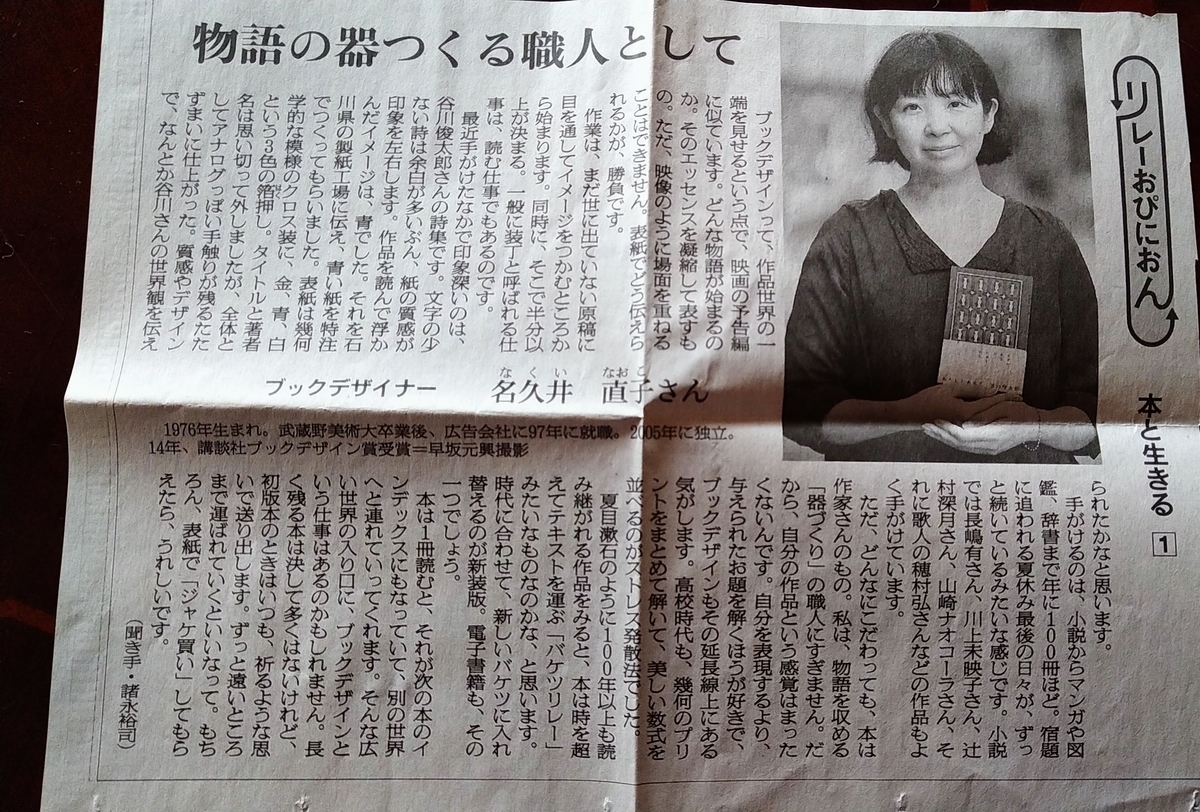 リレーおぴにおん
本と生きる
1
物語の器つくる職人として
ブックデザインって、作品世界の一
端を見せるという点で、映画の予告編
に似ています。どんな物語が始まるの
か。そのエッセンスを凝縮して表すも
の。ただ、映像のように場面を重ねる
ことはできません。表紙でどう伝えら
れるかが、勝負です。
作業は、まだ世に出ていない原稿に
目を通してイメージをつかむところか
ら始まります。同時に、そこで半分以
上が決まる。一般に装丁と呼ばれる仕
事は、読む仕事でもあるのです。
最近手がけたなかで印象深いのは、
谷川俊太郎さんの詩集です。文字の少
ない詩は余白が多いぶん、紙の質感が
印象を左右します。作品を読んで浮か
んだイメージは、青でした。それを石
川県の製紙工場に伝え、青い紙を特注
でつくってもらいました。表紙は幾何
学的な模様のクロス装に、金、青、白
という3色の箔押し。タイトルと著者
名は思い切って外しましたが、全体と
してアナログっぽい手触りが残るたた
ずまいに仕上がった。質感やデザイン
で、なんとか谷川さんの世界観を伝え
ブックデザイナー 名久井 直子さん
なくい なおこ
1976年生まれ。武蔵野美術大卒業後、広告会社に97年に就職。2005年に独立。
14年、講談社ブックデザイン賞受賞＝早坂元興撮影
られたかなと思います。
手がけるのは、小説からマンガや図
鑑、辞書まで年に100冊ほど。宿題
に追われる夏休み最後の日々が、ずっ
と続いているみたいな感じです。小説
では長嶋有さん、川上未映子さん、辻
村深月さん、山崎ナオコーラさん、そ
れに歌人の穂村弘さんなどの作品もよ
く手がけています。
ただ、どんなにこだわっても、本は
作家さんのもの。私は、物語を収める
「器づくり」の職人にすぎません。だ
から、自分の作品という感覚はまった
くないんです。自分を表現するより、
与えられたお題を解くほうが好きで、
ブックデザインもその延長線上にある
気がします。高校時代も、幾何のプリ
ントをまとめて解いて、美しい数式を
並べるのがストレス発散法でした。
夏目漱石のように100年以上も読
み継がれる作品をみると、本は時を超
えてテキストを運ぶ「バケツリレー」
みたいなものなのかな、と思います。
時代に合わせて、新しいバケツに入れ
替えるのが新装版。電子書籍も、その
一つでしょう。
本は1冊読むと、それが次の本のイ
ンデックスにもなっていて、別の世界
へと連れていってくれます。そんな広
い世界の入り口に、ブックデザインと
いう仕事はあるのかもしれません。長
く残る本は決して多くはないけれど、
初版本のときはいつも、祈るような思
いで送り出します。ずっと遠いところ
まで運ばれていくといいなって。もち
ろん、表紙で「ジャケ買い」してもら
えたら、うれしいです。
（聞き手・諸永裕司）